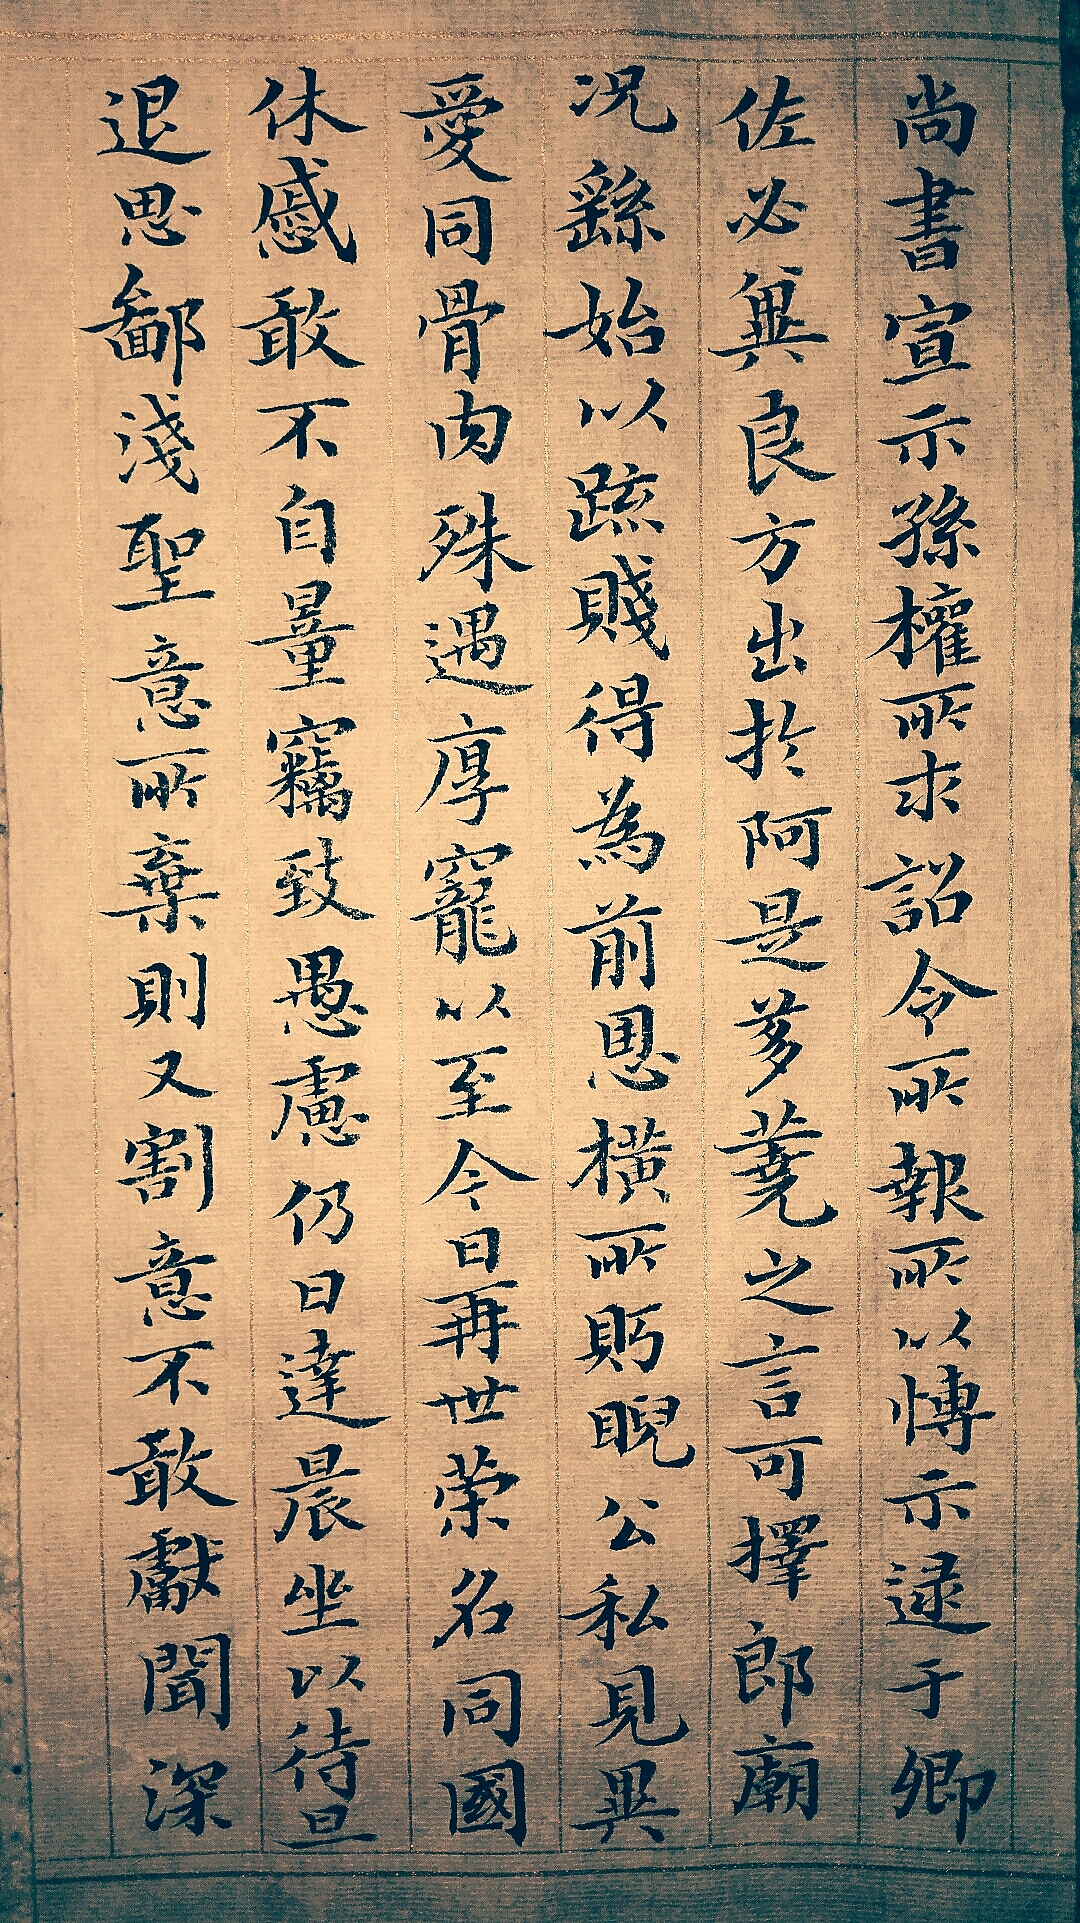 尚書宣示孫權所求詔令所報所以慱示逯于卿
佐必兾良方出於阿是芻蕘之言可擇郎廟
况繇始以疏賤得為前恩橫所眄睨公私見異
愛同骨肉殊遇厚寵以至今日再世荣名同國
休慼敢不自量竊致愚慮仍日達晨坐以待旦
退思鄙淺聖意所棄則又割意不敢獻聞深